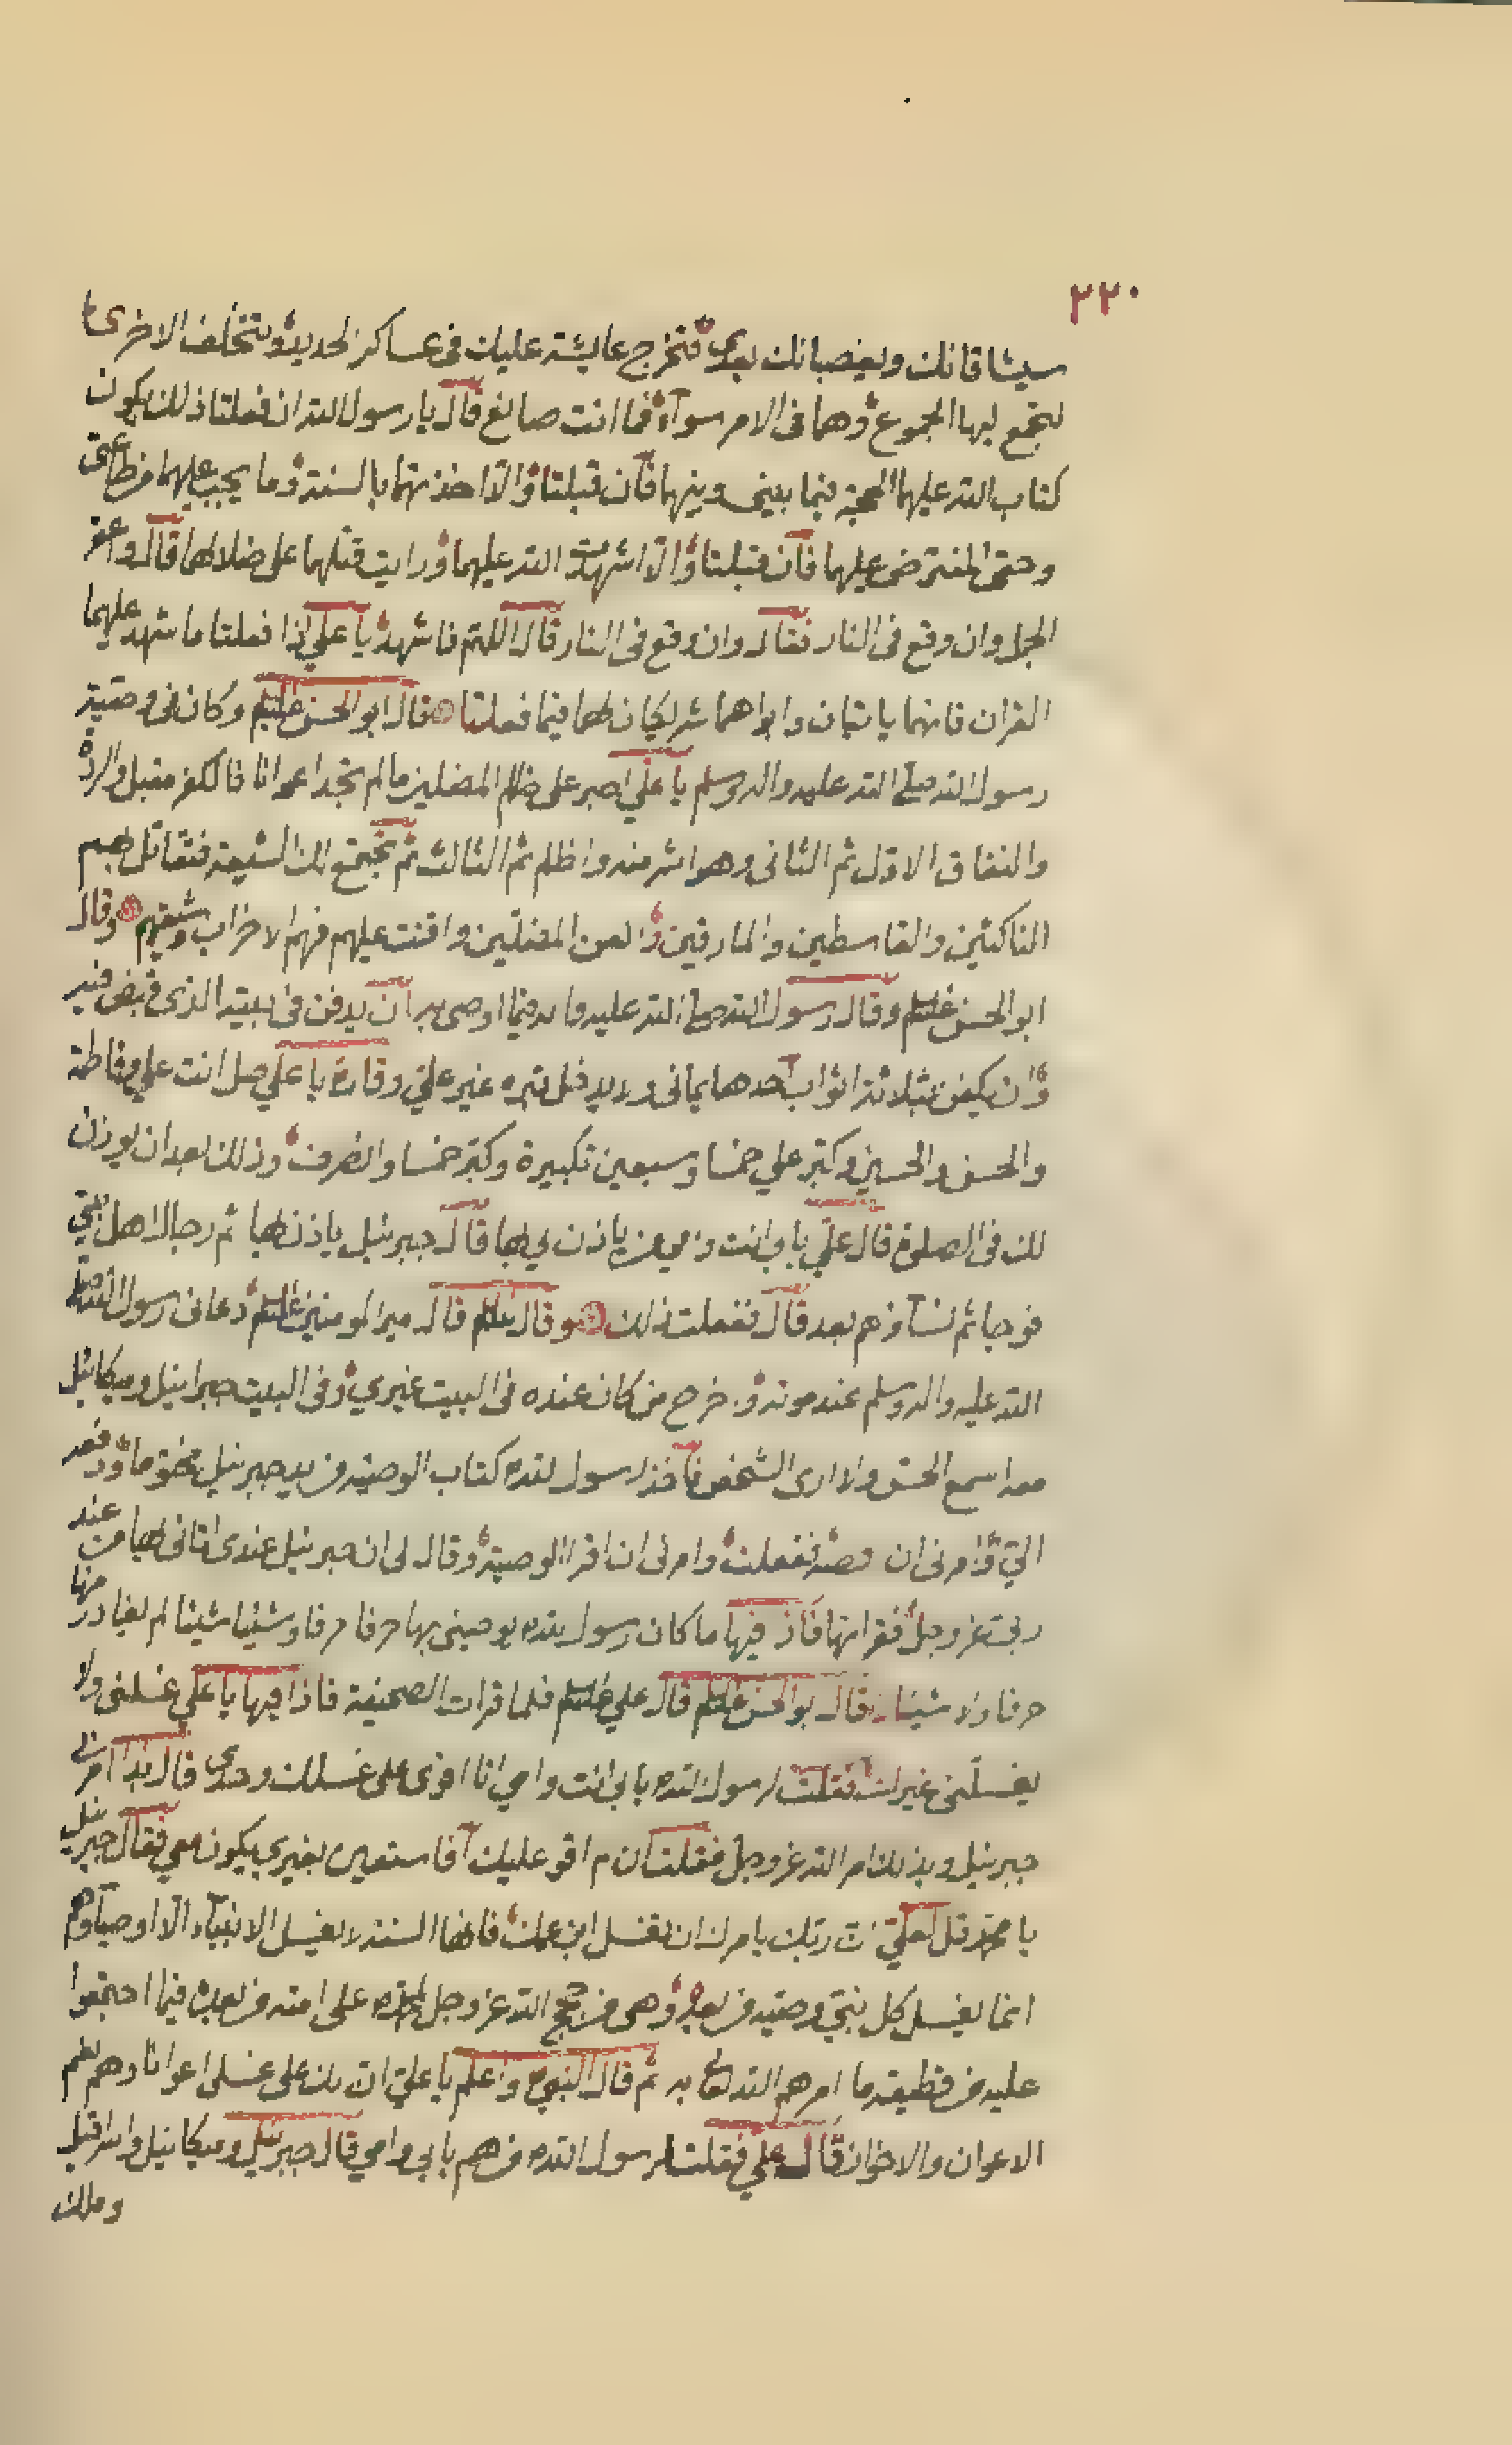 ٢٢٠
سيشاقانك ويعصيانك بعدي فتخرج عايشة عليك في عساكر الحديد وتتخلف الاخرى
لتجمع ليها الجموع وهما في الامر سوآء فما انت صانع قال يا رسول الله ان فعلتا ذلك يكون
كتاب الله عليهما الحجة فيما بيني وبينهما فان قبلتا والا اخذتهما بالسنة وما يجب عليهما من طاعتي
وحقي المفترض عليهما فان قبلتا والا اشهدت الله عليهما ورايت قتلهما على ضلالهما قال وعقر
الجمل وان وقع في النار فقال وان وقع في النار قال اللهم فاشهد يا علي اذا فعلتا ما شهد عليهما
القران فابنهما ياتيان وابواهما شريكان لهما فيما فعلتا قال ابو الحسن علیلم وكان في وصيته
رسول الله صلى الله عليه واله وسلم يا علي اصبر على ظلم المضلين ما لم تجد اعوانا فالكفر مقبل والردة
والنفاق الاول ثم الثاني وهو اشر منه واظلم ثم الثالث ثم تجتمع لك الشيعة فتقاتل بهم
الناكثين والقاسطين والمارقين والعن المضلين واقنت عليهم فهم الاحزاب وشيعتهم وقال
ابو الحسن علیلم وقال رسول الله صلى الله عليه واله فيما اوصى به ان يدفن في بيته الذي قبض فيه
وان يكفن بثلاثة اثواب احدها يماني ولا يدخل قبره غير علي وقال يا علي صل انت علي وفاطمة
والحسن والحسين وكبر علي خمسا وسبعين تكبيرة وكبر خمسا وانصرف وذلك بعد ان يوذن
لك في الصلوة قال علي بابي انت وامي من ياذن لي بها قال جبرئيل ياذن بها ثم رجال اهل بيتي
فوجا ثم نساؤهم بعد قال ففعلت ذلك وقال علیلم قال امير المومنين علیلم دعاني رسول الله صلى
الله عليه واله وسلم عند موته واخرج من كان عنده في البيت غيري وفي البيت جبرائيل وميكائيل
معه اسمع الحس ولا ارى الشخص فاخذ رسول الله كتاب الوصية من يد جبرئيل مختوما ودفعه
الي وامرني ان فضه ففعلت وامرني ان اقرا الوصية وقال لي ان جبرئيل عندي اتاني بها من عند
ربي عز وجل فقراتها فاذا فيها ما كان رسول الله يوصيني بها حرفا حرفا وشيئا شيئا لم يغادر منها
حرفا ولا شيئا وقال ابو الحسن علیلم قال علي علیلم فلما قرات الصحيفة فاذا فيها يا علي غسلني ولا
يغسلني غيرك فقلت لرسول الله بابي انت وامي انا اقوى على غسلك وحدي قال بذا امرني
جبرئيل وبذلك امر الله عز وجل فقلت فان لم اقو عليك فاستعين بغيري يكون معي فقال جبرئيل
يا محمد قل لعلي ان ربك يامرك ان تغسل ابن عمك فانها السنة لا يغسل الانبياء الا اوصياؤهم
انما يغسل كل نبي وصيته من بعده وهي من حجج الله عز وجل لمحمد على امته من بعده فيما اجتمعوا
عليه من قطيعة ما امرهم الله تعالى به ثم قال النبي واعلم يا علي ان لك على غسلي اعوانا وهم نعم
الاعوان والاخوان قال علي فقلت لرسول الله من هم بابي وامي قال جبرئيل وميكائيل واسرافيل
وملك